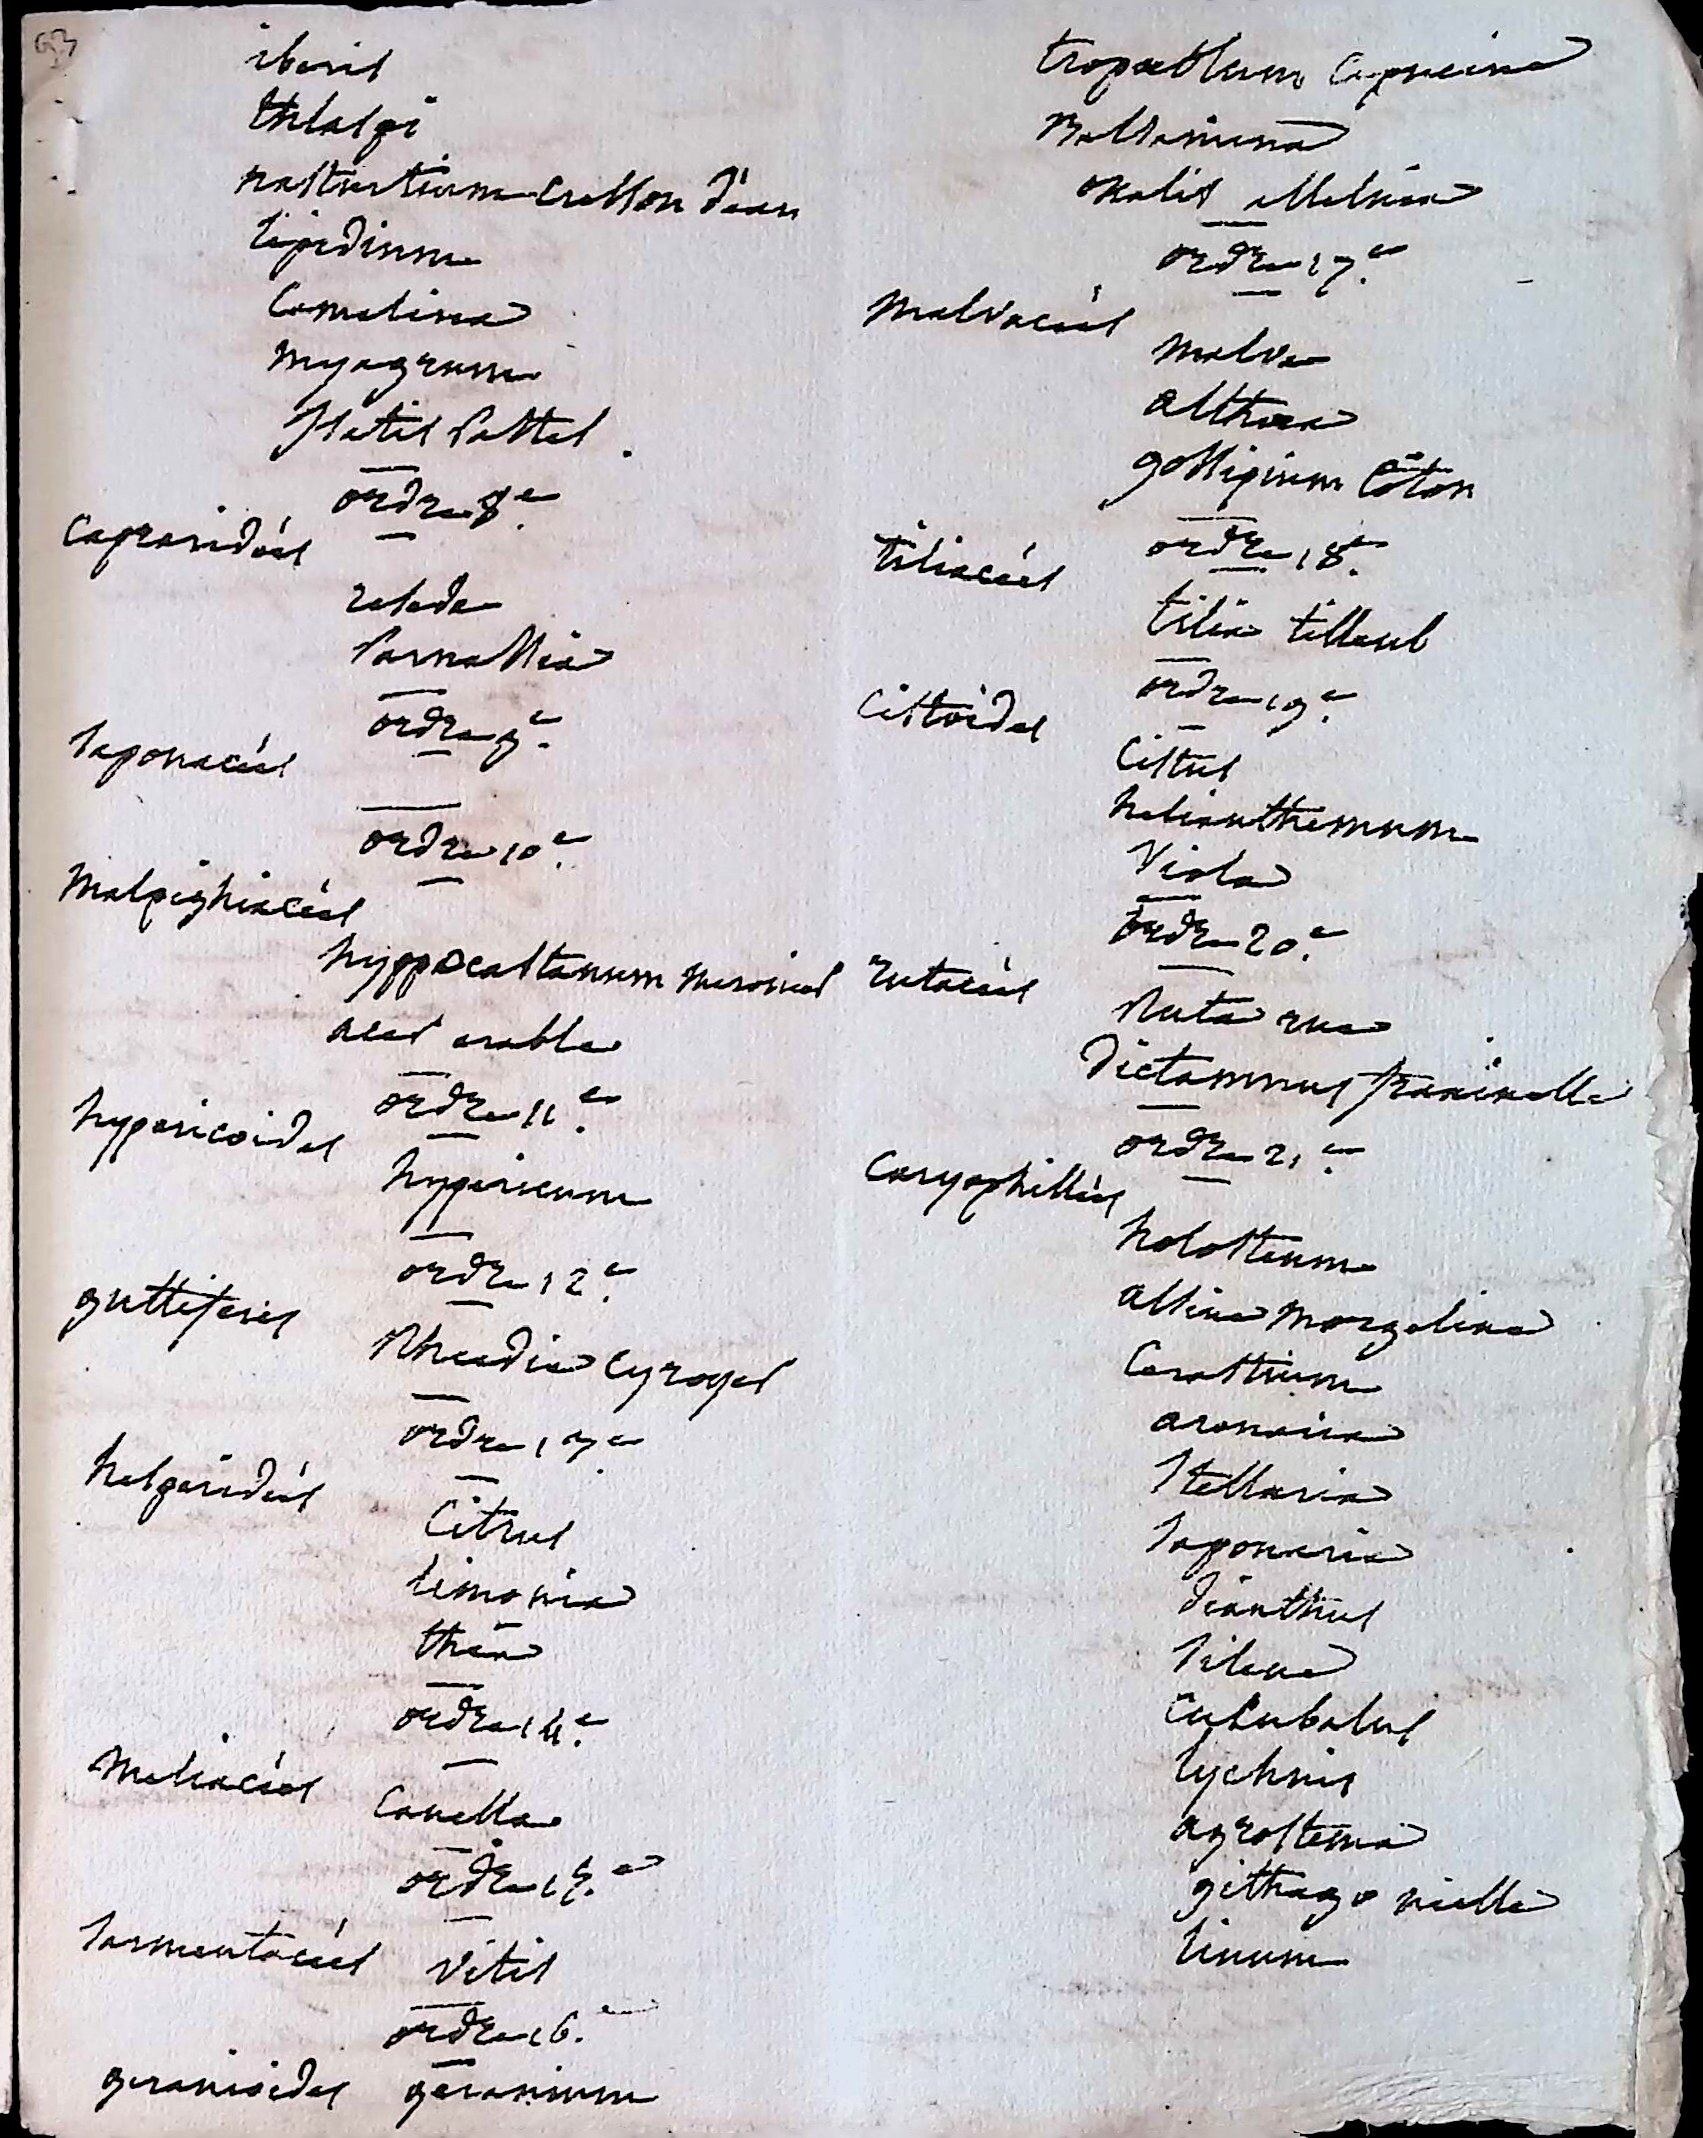 63
iberis
thlaspi
nasturtium cresson d'eau
lepidium
Camelina
myagrum
Isatis Pastel.
ordre 8e.
Capparidées
reseda
Parnassia
ordre 9e.
Saponacées
ordre 10e.
Malpighiacées
hyppocastanum maronier
acer erable
ordre 11e.
hypericoides
hypericum
ordre 12e.
guttiferes
Rheedia Cyroyer
ordre 13e.
hesperidées
Citrus
limonia
thea
ordre 14e.
Meliacées
Canella
ordre 15.e
Sarmentacées
Vitis
ordre 16.e
geranioides geranium
tropaeolum Capucine
Balsamina
oxalis alleluia
ordre 17e.
Malvacées
Malva
althaea
gossipium Coton
ordre 18e.
tiliacées
tilia tilleul
ordre 19e.
Cistoides
Cistus
helianthemum
Viola
ordre 20e.
rutacées
Ruta rue
Dictamnus fraxinelle
ordre 21e.
Caryophillées
holosteum
alsine Morgeline
Cerastium
arenaria
Stellaria
Saponaria
dianthus
Silene
Cucubalus
lychnis
agrostema
githago nielle
linum